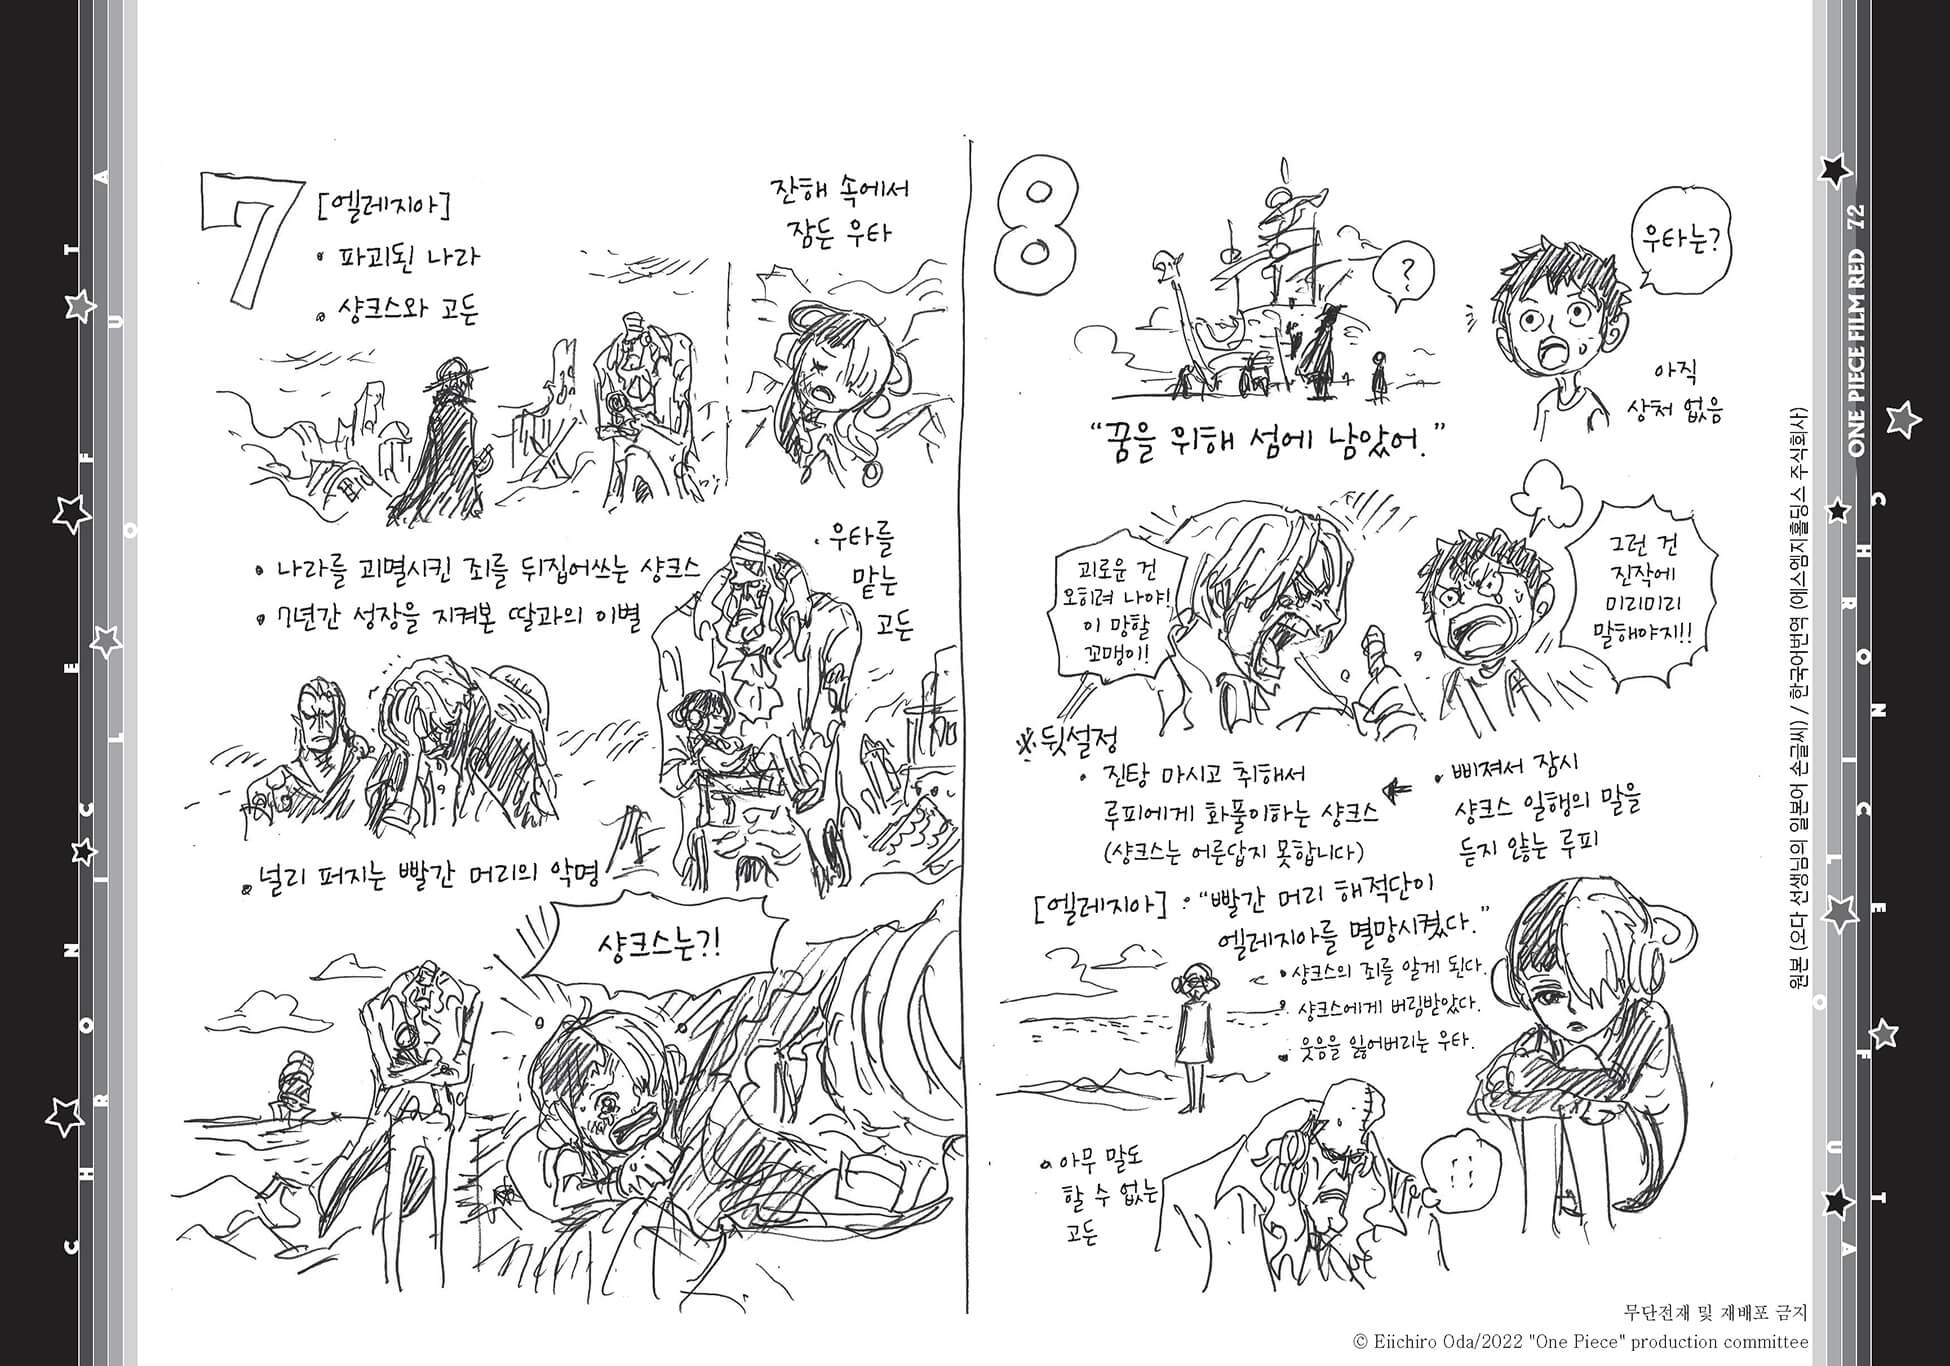 7
[엘레지아]
• 파괴된 나라
• 샹크스와 고든
잔해 속에서
잠든 우타
• 나라를 괴멸시킨 죄를 뒤집어쓰는 샹크스
• 7년간 성장을 지켜본 딸과의 이별
• 우타를
맡는
고든
• 널리 퍼지는 빨간 머리의 악명
샹크스는?!
8
?
우타는?
아직
상처 없음
"꿈을 위해 섬에 남았어."
괴로운 건
오히려 나야!
이 망할
꼬맹이!
그런 건
진작에
미리미리
말해야지!!
※뒷설정
• 진탕 마시고 취해서
루피에게 화풀이하는 샹크스
(샹크스는 어른답지 못합니다)
←
• 삐져서 잠시
샹크스 일행의 말을
듣지 않는 루피
[엘레지아] : "빨간 머리 해적단이
엘레지아를 멸망시켰다."
• 샹크스의 죄를 알게 된다.
• 샹크스에게 버림받았다.
• 웃음을 잃어버리는 우타.
• 아무 말도
할 수 없는
고든
!!
CHRONICLE OF UTA
ONE PIECE FILM RED 72
CHRONICLE OF UTA
원본 (오다 선생님의 일본어 손글씨) / 한국어번역 (에스엠지홀딩스 주식회사)
무단전재 및 재배포 금지
© Eiichiro Oda/2022 "One Piece" production committee